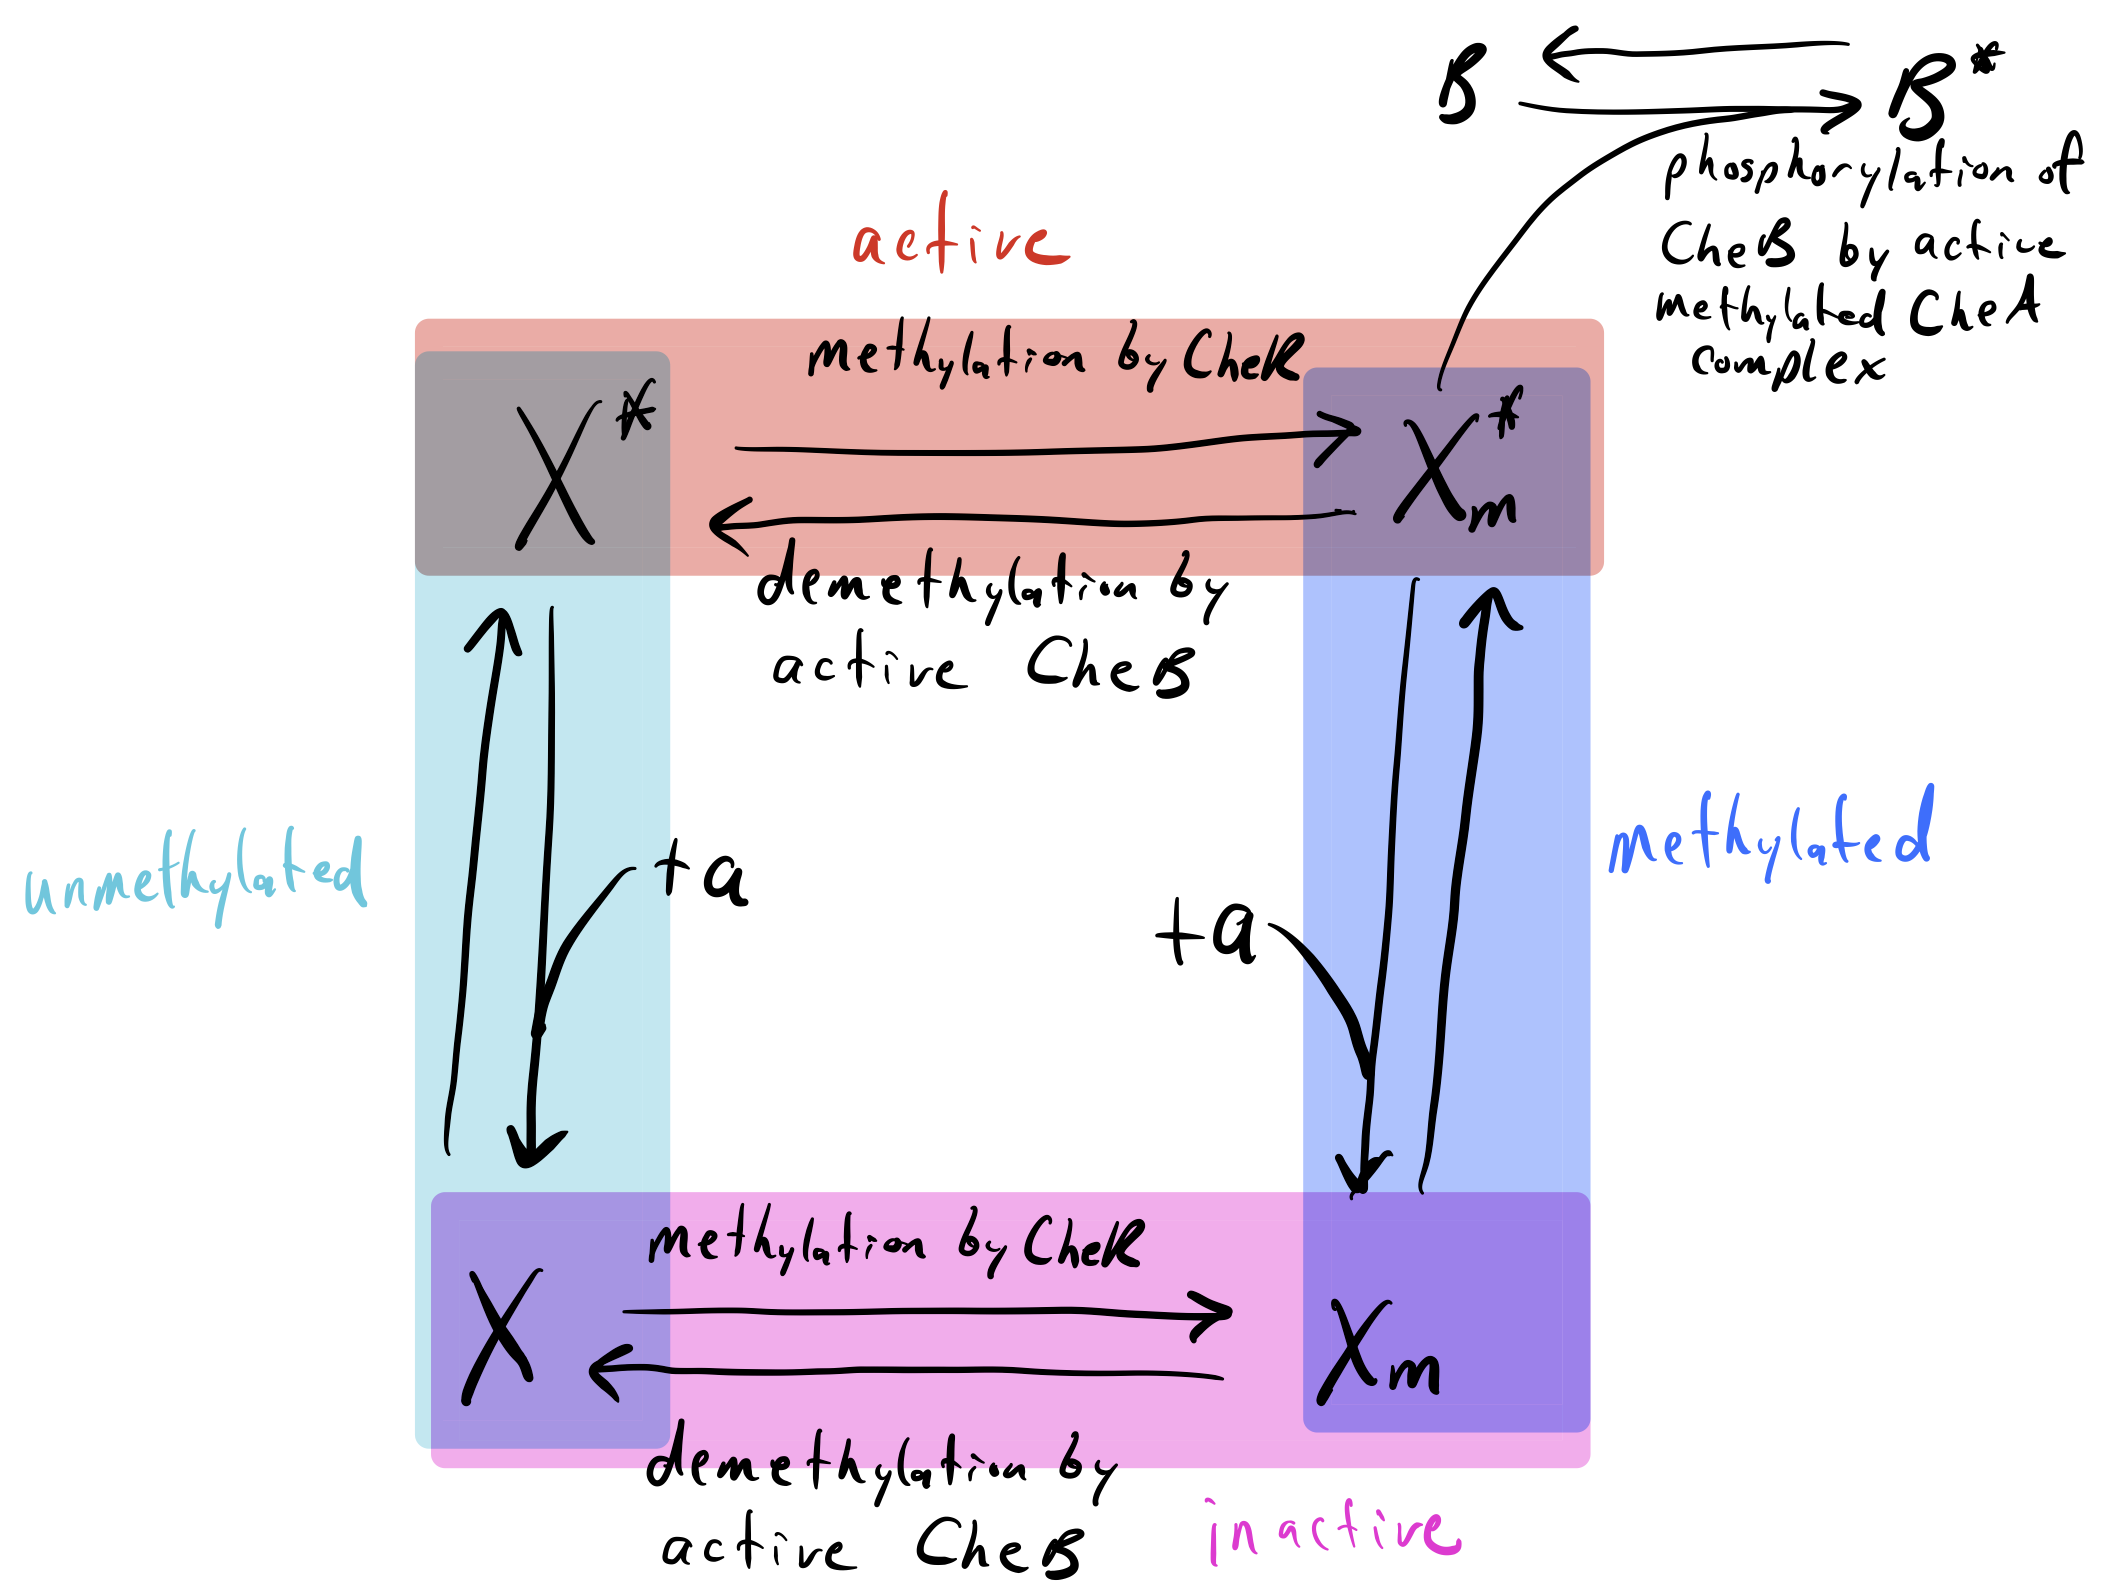 B
B*
phosphorylation of
CheB by active
methylated CheA
complex
active
methylation by CheR
X*
Xm*
demethylation by
active CheB
unmethylated
+a
+a
methylated
methylation by CheR
X
Xm
demethylation by
active CheB
inactive